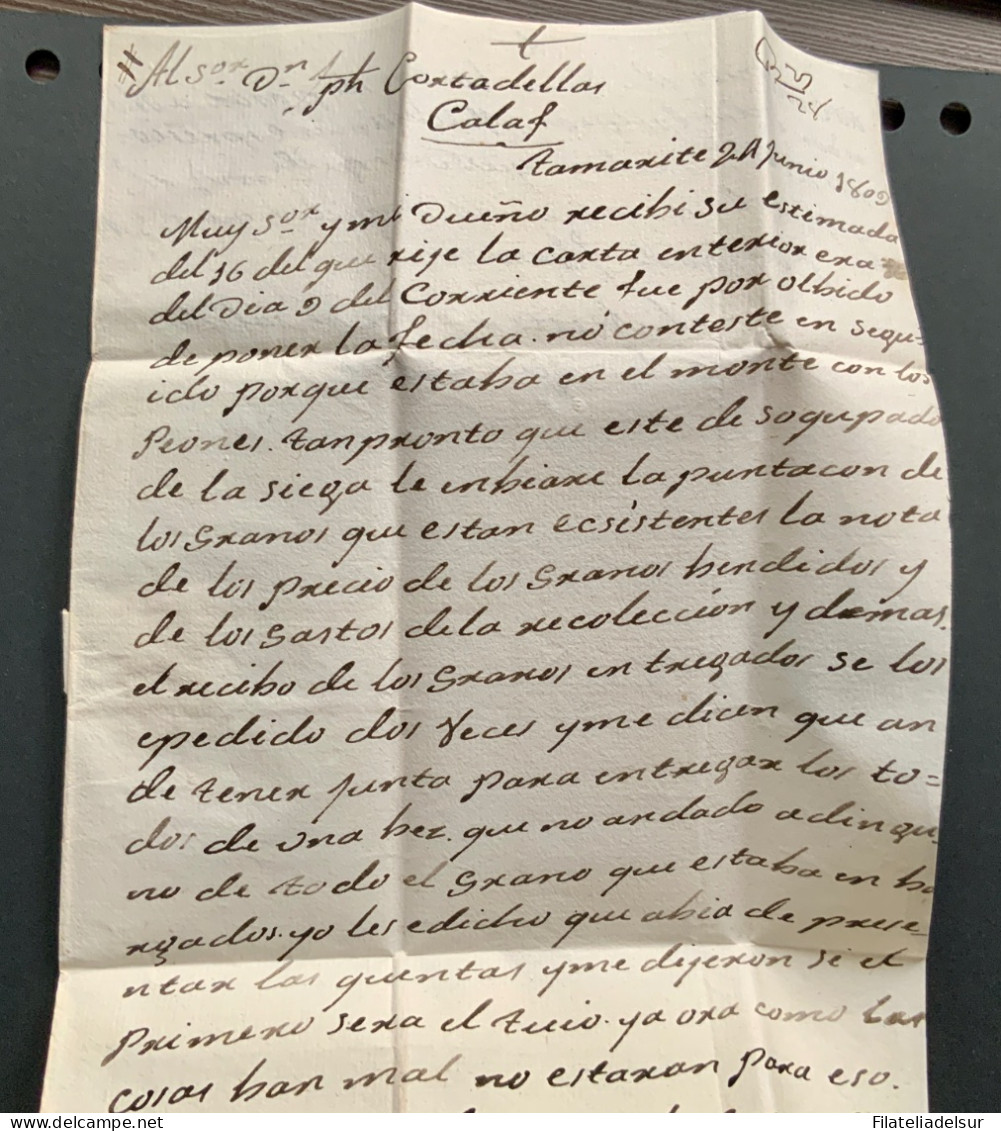 Al Sor. Dn. Jph Cortadellas
Calaf
Tamarite 24 Junio 1809
Muy Sor. y mi Dueño recibi su estimada
del 16 del que rije la carta enterior era
del Dia 9 del Corriente fue por olbido
de poner la fecha. nó conteste en segu-
ido porque estaba en el monte con los
Peones. tan pronto que este de so qupado
de la siega le enbiare la puntacon de
los Granos que estan ecsistentes la nota
de los precio de los Granos bendidos y
de los Gastos de la recoleccion y demas.
el recibo de los Granos entregados se los
epedido dos Veces y me dicen que an
de tener Junta para entregar los to=
dos de una bez. que no an dado a dingu-
no de todo el Grano que estaba en ba
rgados. yo les e dicho que abia de prese-
ntar las quentas y me dijeron si el
Primero sera el tuio. ya ora como las
cosas ban mal no estaran para eso.
Filateliadelsur